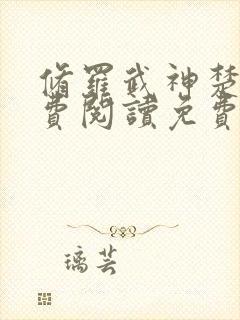 脩羅武神楚
費閱讀免費
璃芸